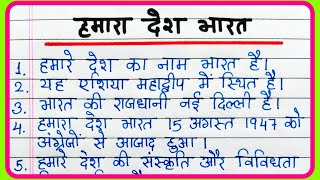 हमारा देश भारत
1. हमारे देश का नाम भारत है।
2. यह एशिया महाद्वीप में स्थित है।
3. भारत की राजधानी नई दिल्ली है।
4. हमारा देश भारत 15 अगस्त 1947 को
अंग्रेजों से आजाद हुआ।
5. हमारे देश की संस्कृति और विविधता